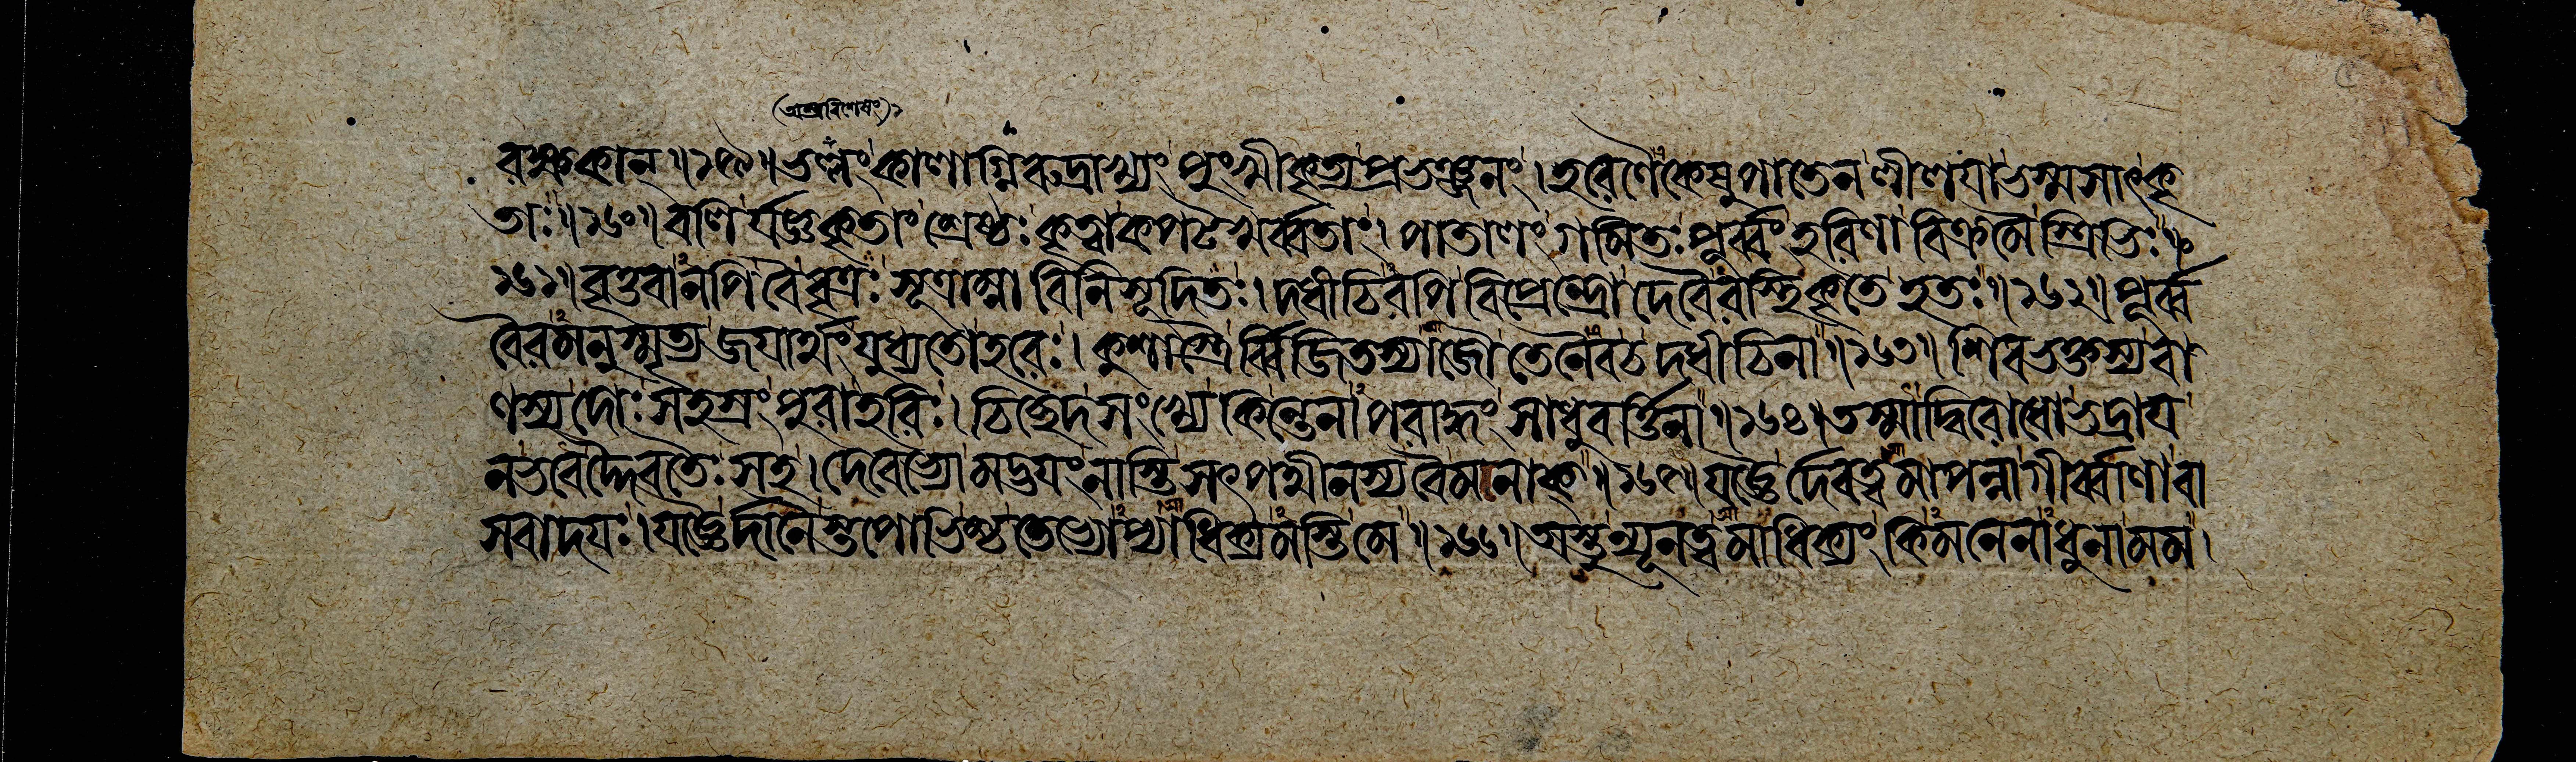 (অস্ত্রবিশেষং)২
রক্ষকান্॥১৫৯॥ভল্লং কালাগ্নিরুদ্রাখ্যং পুংখীকৃত্য প্রভঞ্জনং। হরেণৈকেষুপাতেন লীলয়া ভস্মসাৎকৃ
তাঃ॥১৬০॥বলির্যজ্ঞকৃতাং শ্রেষ্ঠঃ কৃত্বা কপটখর্ব্বতাং। পাতালং গমিতঃ পূর্ব্বং হরিণা বিক্রমৈস্ত্রিভিঃ॥
১৬১॥বৃত্তবানপি বৈ বৃত্রঃ সূত্রাম্না বিনিসূদিতঃ। দধীচিরপি বিপ্রেন্দ্রো দেবৈরস্থিকৃতে হতঃ॥১৬২॥পূর্ব্ব
বৈরমনুস্মৃত্য জয়ার্থং যুধ্যতো হরেঃ। কুশাস্ত্রৈর্ব্বিজিতস্যাজৌ তেনৈব চ দধীচিনা॥১৬৩॥শিবভক্তস্য বা
ণস্য দোঃসহস্রং পুরা হরিঃ। চিচ্ছেদ সংখ্যে কিন্তেনাপরাদ্ধং সাধুবর্ত্তিনা॥১৬৪॥তস্মাদ্বিরোধো ভদ্রায়
ন ভবেদ্দৈবতৈঃ সহ। দেবেভ্যো মদ্ভয়ং নাস্তি সৎপথীনস্য বৈ মনাক্॥১৬৫॥যজ্ঞৈর্দেবত্বমাপন্না গীর্ব্বাণা বা
সবাদয়ঃ। যজ্ঞৈর্দানৈস্তপোভিশ্চ তেভ্যোপ্যাধিক্যমস্তি মে॥১৬৬॥অস্তু ন্যূনত্বমাধিক্যং কিমনেনাধুনা মম।